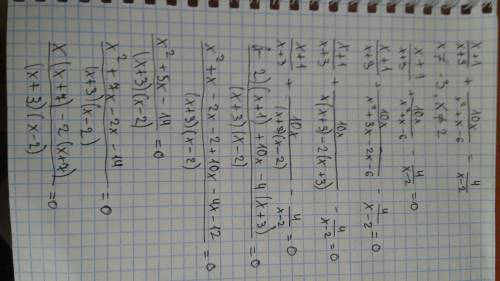 x+1/x+3 + 10x/x²+x-6 = 4/x-2
x ≠ -3, x ≠ 2
x+1/x+3 + 10x/x²+x-6 - 4/x-2 = 0
x+1/x+3 + 10x/x²+3x-2x-6 - 4/x-2 = 0
x+1/x+3 + 10x/x(x+3)-2(x+3) - 4/x-2 = 0
x+1/x+3 + 10x/(x+3)(x-2) - 4/x-2 = 0
(x-2)(x+1)+10x-4(x+3)/(x+3)(x-2) = 0
x²+x-2x-2+10x-4x-12/(x+3)(x-2) = 0
x²+5x-14/(x+3)(x-2) = 0
x²+7x-2x-14/(x+3)(x-2) = 0
x(x+7)-2(x+7)/(x+3)(x-2) = 0